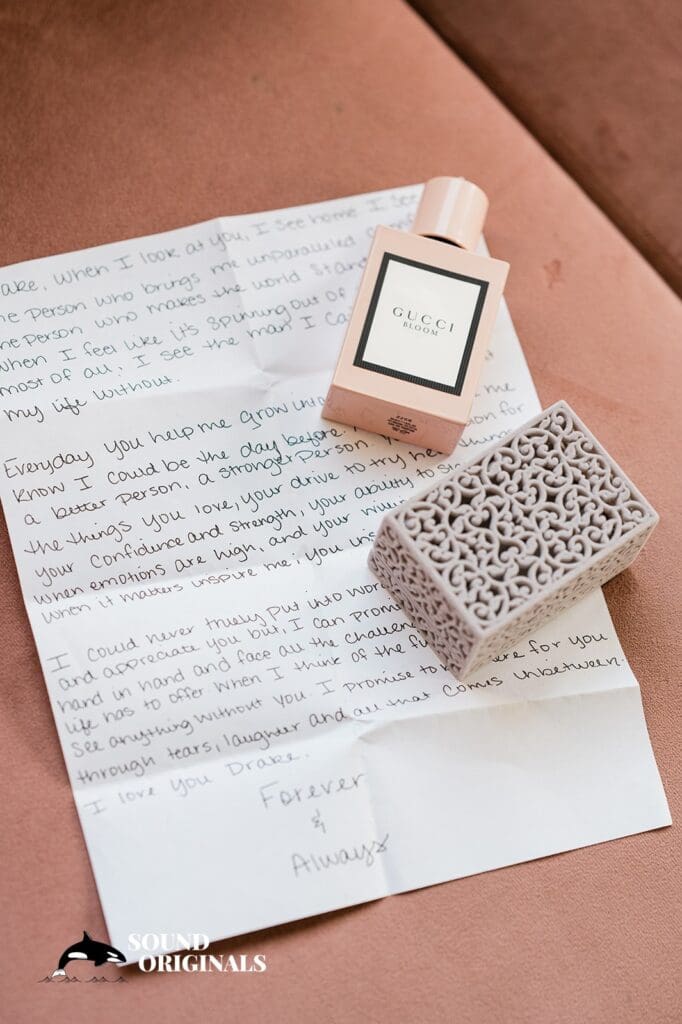 ake, When I look at you, I see home I see
ne person who brings me unparalleled
ne person who makes the world stand
when I feel like it's spinning out of
most of all, I see the man I
my life without.
Everyday you help me grow into
know I could be the day before.
a better person, a stronger person
the things you love, your drive to try
your confidence and strength, your ability to
when emotions are high, and your
when it matters inspire me, you
I could never truely put into
and appreciate you but, I can
hand in hand and face all the
life has to offer when I think of the
see anything without you. I promise to
for you
through tears, laughter and all that comes inbetween.
I love you Drake.
Forever
&
Always
GUCCI
BLOOM
SOUND
ORIGINALS